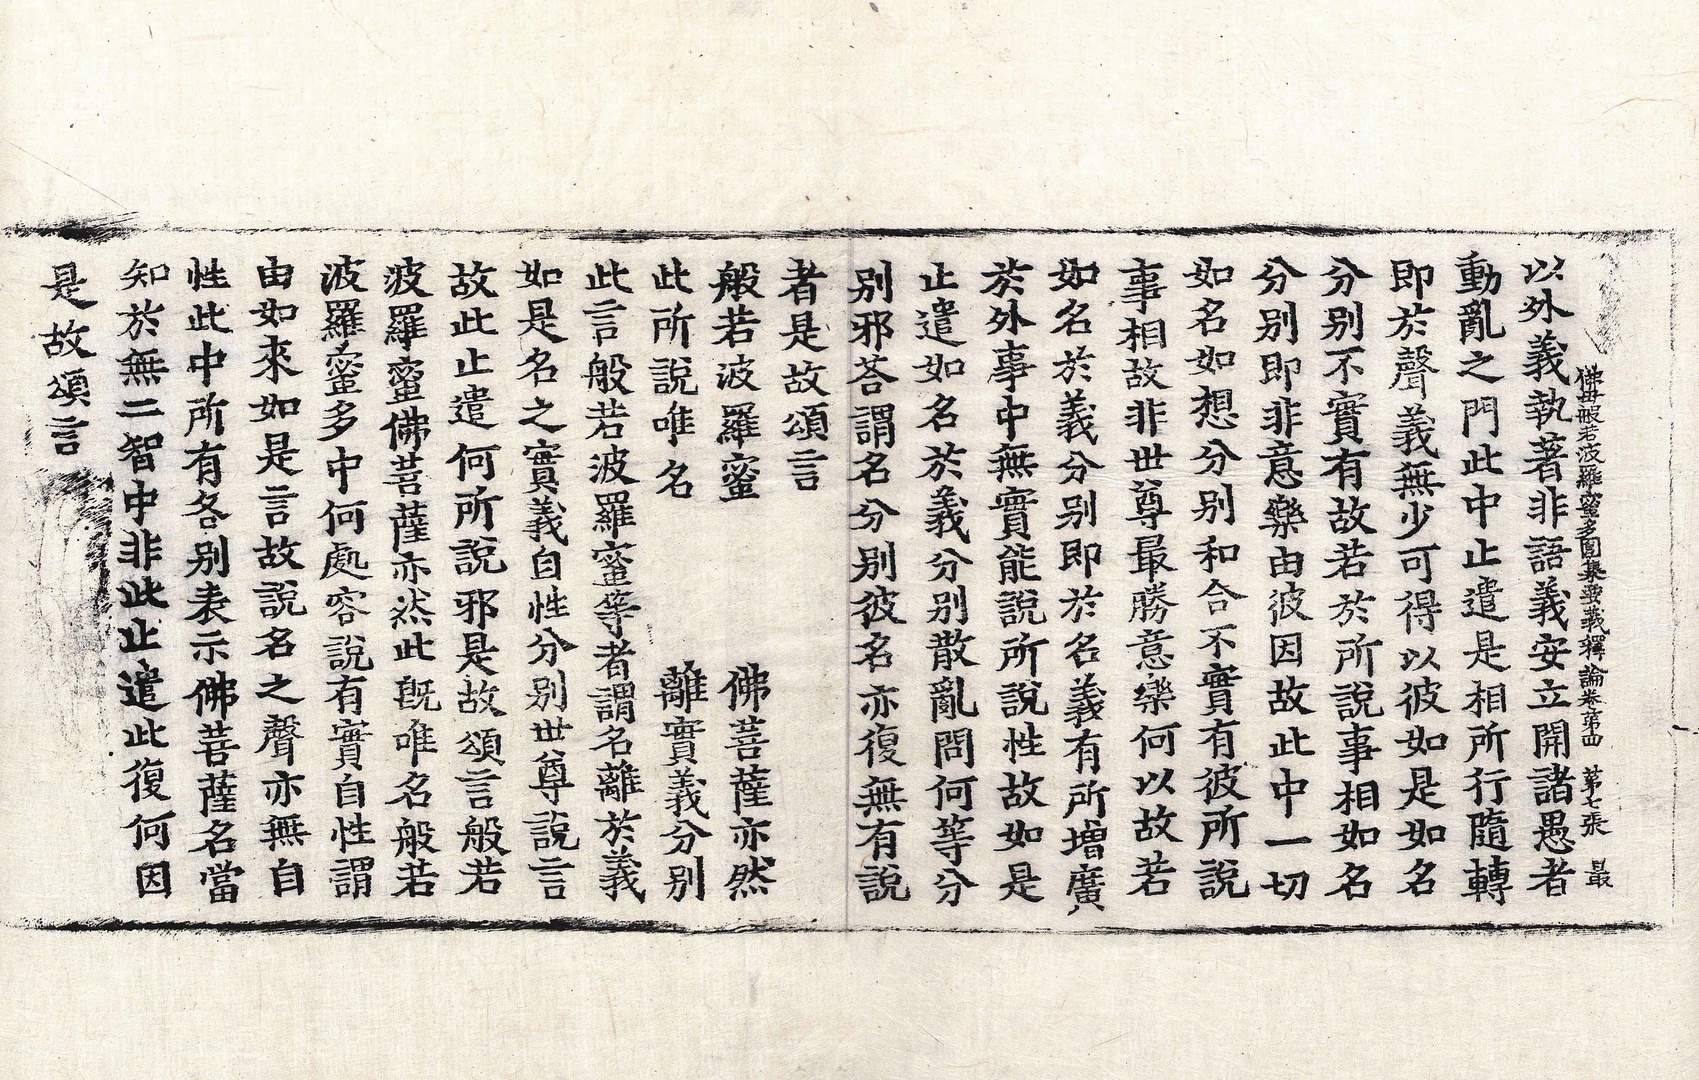 佛母般若波羅蜜多圓集要義釋論卷第四 第七張 㝡
以外義執著非語義安立開諸愚者
動亂之門此中止遣是相所行隨轉
即於聲義無少可得以彼如是如名
分別不實有故若於所說事相如名
分別即非意樂由彼因故此中一切
如名如想分別和合不實有彼所說
事相故非世尊最勝意樂何以故若
如名於義分別即於名義有所增廣
於外事中無實能說所說性故如是
止遣如名於義分別散亂問何等分
別邪荅謂名分別彼名亦復無有說
者是故頌言
般若波羅蜜 佛菩薩亦然
此所說唯名 離實義分別
此言般若波羅蜜等者謂名離於義
如是名之實義自性分別世尊說言
故此止遣何所說邪是故頌言般若
波羅蜜佛菩薩亦然此旣唯名般若
波羅蜜多中何處容說有實自性謂
由如來如是言故說名之聲亦無自
性此中所有各別表示佛菩薩名當
知於無二智中非此止遣此復何因
是故頌言